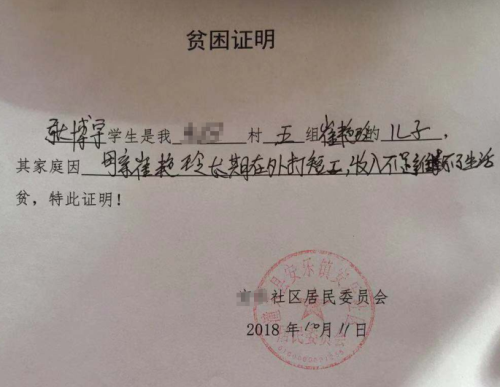 贫困证明
张博宇学生是我 村 五 组崔艳玲的 儿子,
其家庭因 母亲崔艳玲长期在外打短工,收入不足 维持不了生活
贫,特此证明!
社区居民委员会
2018 年 10 月 11 日